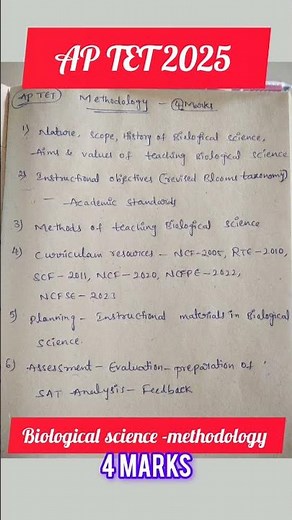 AP TET 2025
AP TET Methodology - 4 Marks
1) Nature, Scope, History of Biological science,
Aims & values of teaching Biological science
2) Instructional objectives (revised Blooms taxonomy)
- Academic Standards
3) Methods of teaching Biological science
4) Curriculam resources - NCF-2005, RTE-2010,
SCF-2011, NCF-2020, NCFPE-2022,
NCFSE-2023
5) Planning - Instructional materials in Biological
science.
6) Assessment - Evaluation - preparation of
SAT Analysis - Feedback
Biological science -methodology
4 MARKS